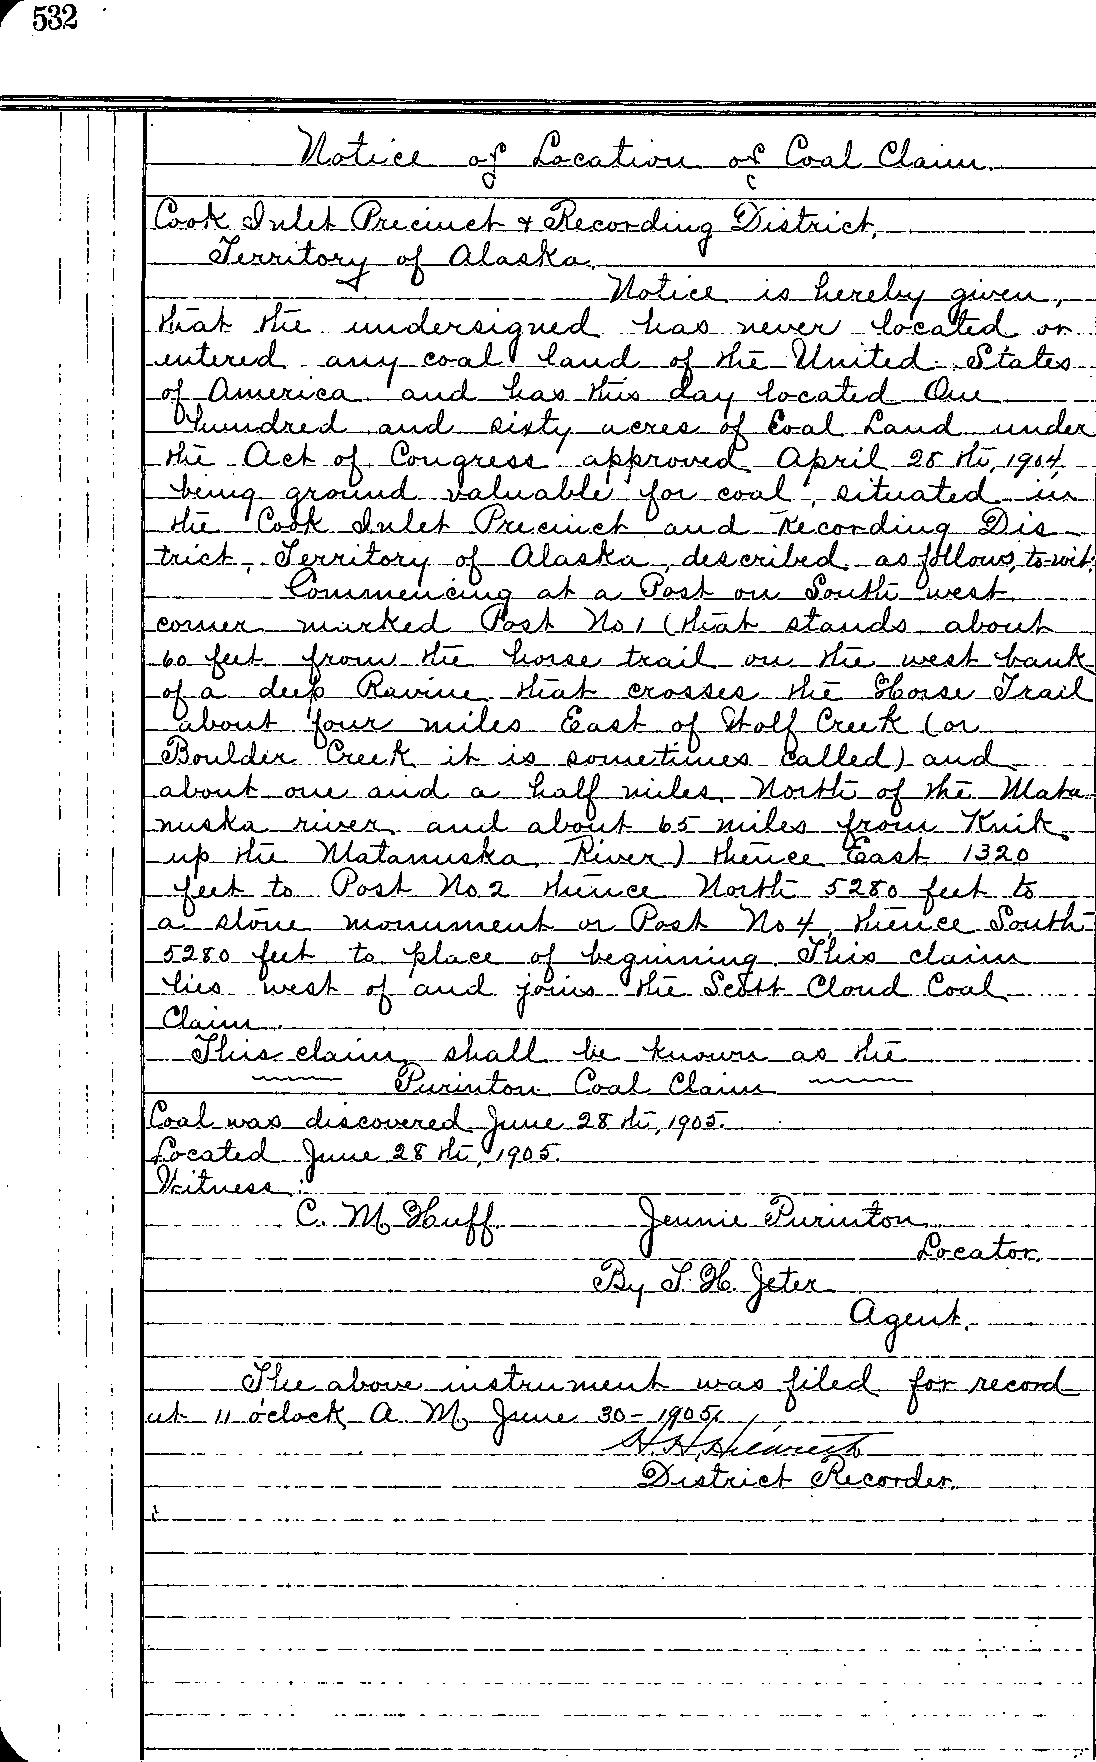 532
Notice of Location of Coal Claim.
Cook Inlet Precinct & Recording District,
Territory of Alaska.
Notice is hereby given,
that the undersigned has never located or
entered any coal land of the United States
of America and has this day located One
Hundred and sixty acres of Coal Land under
the Act of Congress approved April 28 th, 1904,
being ground valuable for coal, situated in
the Cook Inlet Precinct and Recording Dis
trict, Territory of Alaska, described as follows, to-wit:
Commencing at a Post on South west
corner marked Post No 1 (that stands about
60 feet from the horse trail on the west bank
of a deep Ravine that crosses the Horse Trail
about four miles East of Wolf Creek (or
Boulder Creek it is sometimes called) and
about one and a half miles North of the Mata
nuska river and about 65 miles from Knik
up the Matanuska River) thence East 1320
feet to Post No 2 thence North 5280 feet to
a stone monument or Post No 4, thence South
5280 feet to place of beginning. This claim
lies west of and joins the Scott Cloud Coal
Claim.
This claim shall be known as the
Purinton Coal Claim
Coal was discovered June 28 th, 1905.
Located June 28 th, 1905.
Witness:
C. M. Huff Jennie Purinton
Locator.
By T. H. Jeter
Agent.
The above instrument was filed for record
at 11 o'clock A. M. June 30 - 1905.
District Recorder.